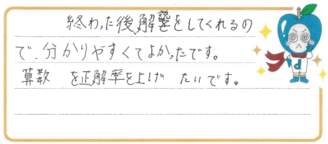 終わった後、解答をしてくれるの
で、分かりやすくてよかったです。
算数 を正解率を上げ たいです。